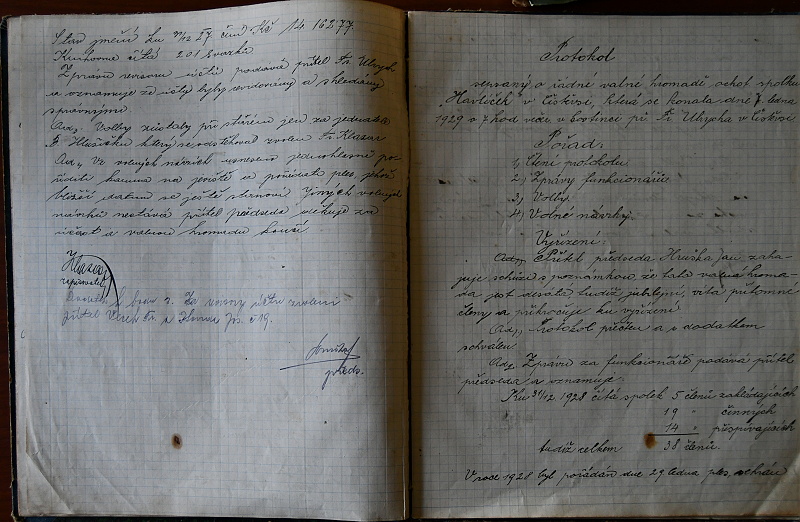 Stav jmění ku 31/12 27 činí Kč 14.162.77.
Knihovna čítá 201 svazků
Zprávu revisorů účtů podává přítel Fr. Ulrych
a oznamuje že účty byly revidovány a shledány
správnými.
Ad, Volby zůstaly při starém jen za jednatele
B. Hlušičku který se odstěhoval zvolen Fr. Klazar
Ad, Ve volných návrzích usneseno jednohlasně po-
říditi kamna na jeviště a pořádati ples, jehož
bližší datum se ještě stanoví Jiných volných
návrhů nestává přítel předseda děkuje za
účast a valnou hromadu končí
zapisovatel
přítel Fr. a
předs.
Protokol
sepsaný o řádné valné hromadě ochot. spolku
"Havlíček" v Čistvsi, která se konala dne 7. ledna
1929 o 7 hod več. v hostinci př. Fr. Ulrycha v Čistvsi
Pořad:
1) Čtení protokolu
2) Zprávy funkcionářů.
3) Volby.
4) Volné návrhy.
Vyřízení:
Ad, Přítel předseda Hruška Jan zaha-
juje schůzi s poznámkou, že tato valná hroma-
da jest desátá tudíž jubilejní, vítá přítomné
členy a přikročuje ku vyřízení
Ad, Protokol přečten a s dodatkem
schválen
Ad, Zprávu za funkcionáře podává přítel
předseda a oznamuje:
Ku 31/12 1928 čítá spolek 5 členů zakládajících
19 " činných
14 " přispívajících
tudíž celkem 38 členů.
V roce 1928 byl pořádán dne 29 ledna ples, sehrán